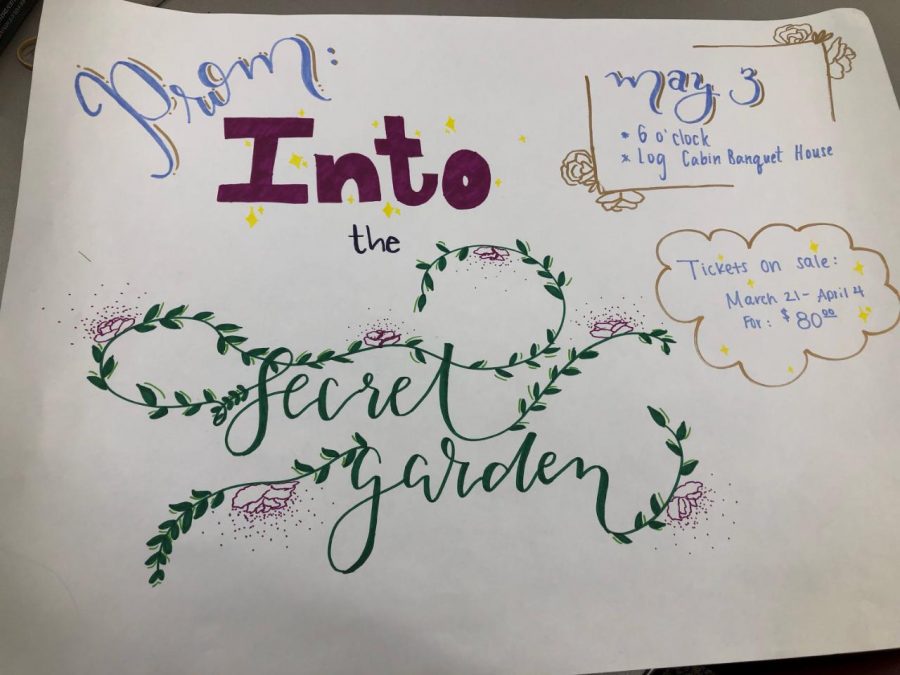 Prom:
Into
the
secret
garden
may 3
* 6 o'clock
* Log Cabin Banquet House
Tickets on sale:
March 21 - April 4
For: $80.00